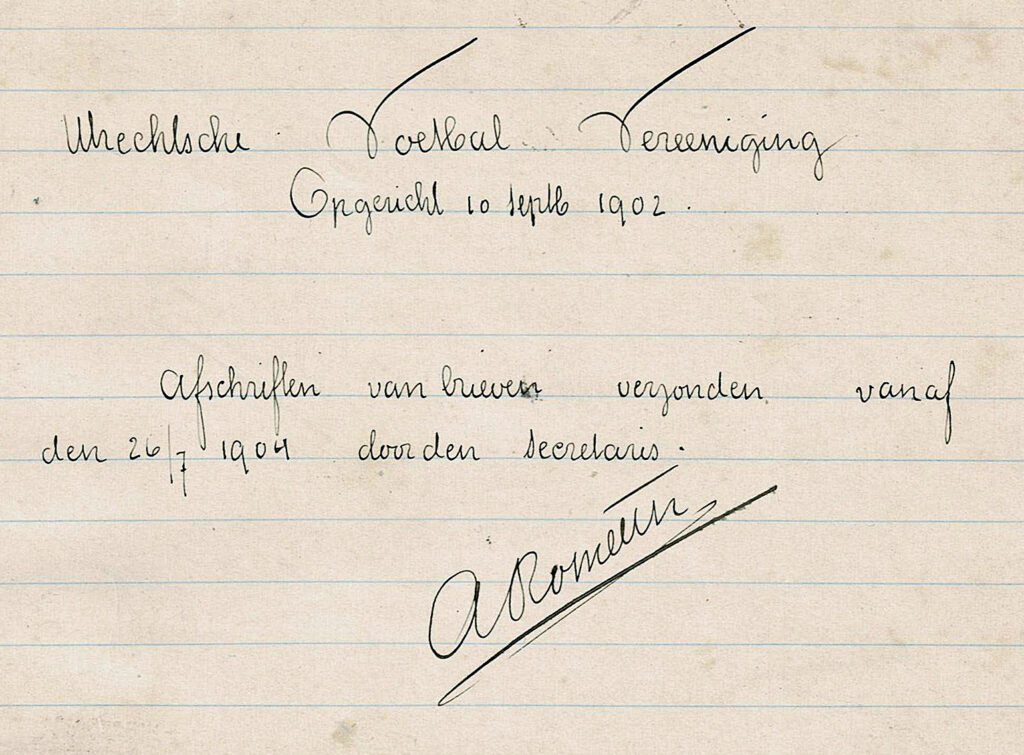 Utrechtsche Voetbal Vereeniging
Opgericht 10 septb 1902.
Afschriften van brieven verzonden vanaf
den 26/7 1904 door den secretaris.